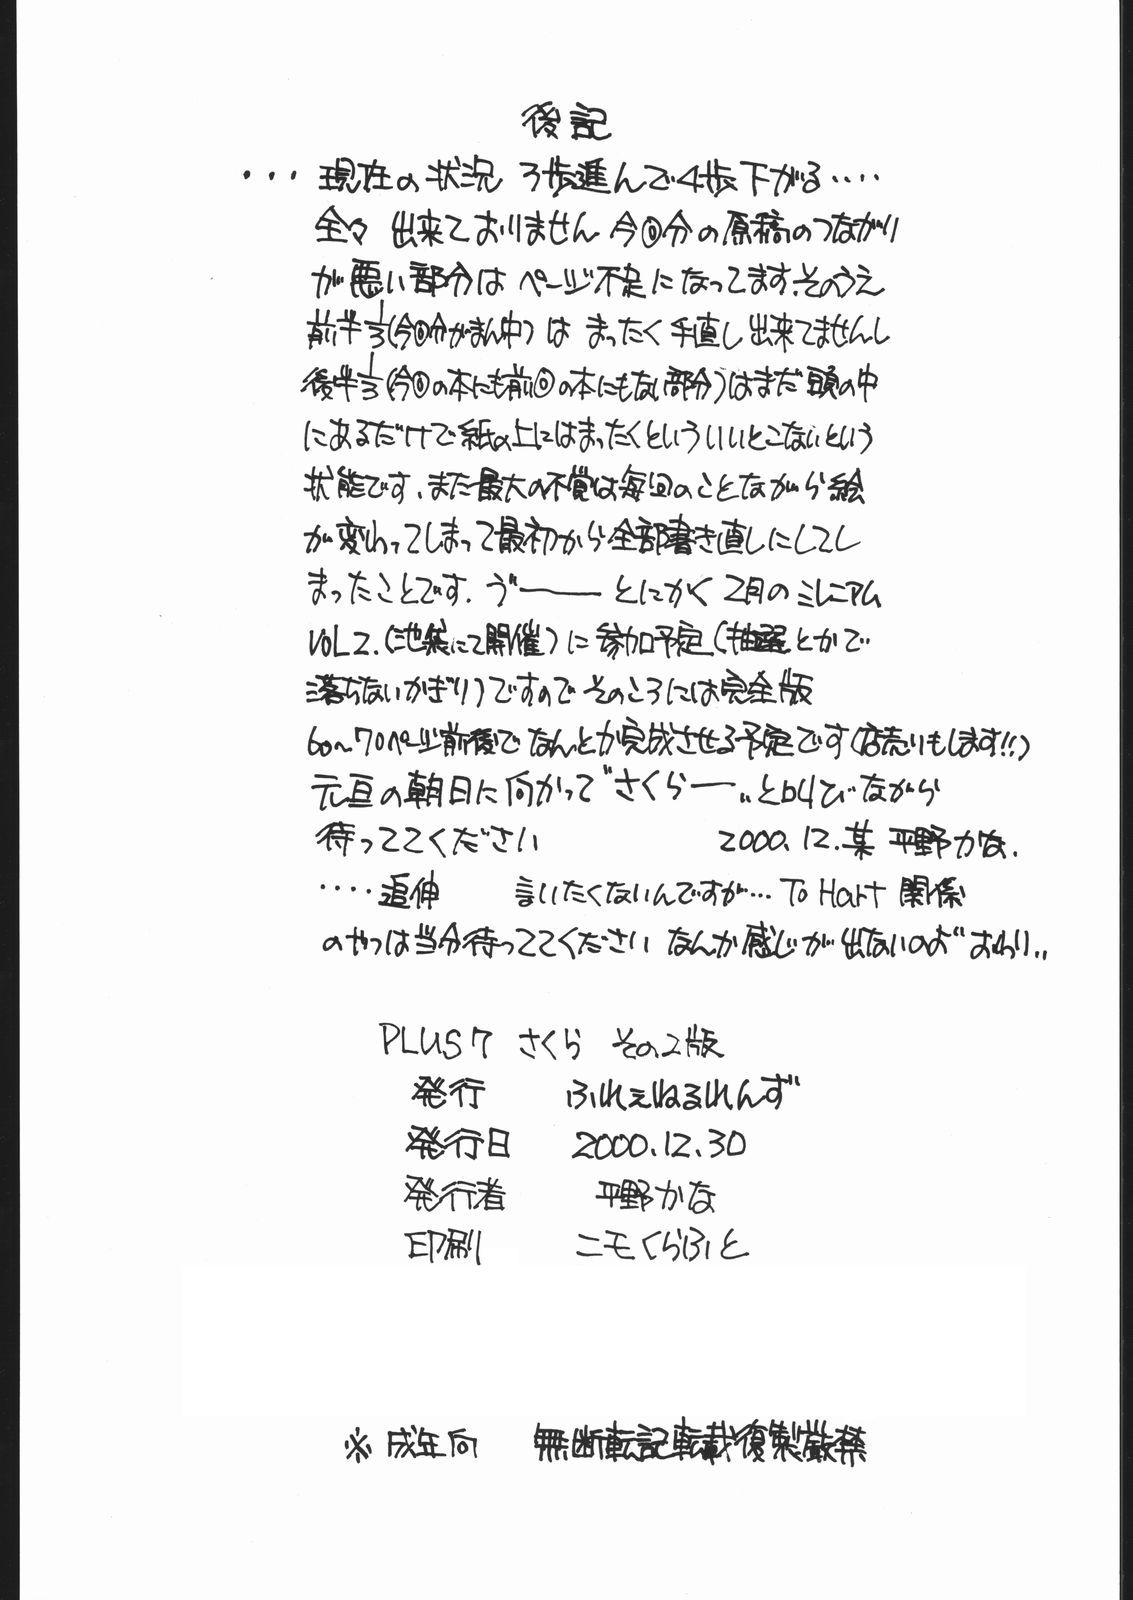 後記
・・・現在の状況 3歩進んで4歩下がる・・・・
全々 出来ておりません 今回分の原稿のつながり
が悪い部分は ページ不足になってます、そのうえ
前半1/3(今回分がまん中)は まったく手直し出来てませんし
後半1/3(今回の本にも前回の本にもない部分)はまだ頭の中
にあるだけで紙の上にはまったくといっていいとこないという
状態です、また最大の不覚は毎回のことながら絵
が変わってしまって最初から全部書き直しにしてし
まったことです. ゔ――― とにかく 2月のミレニアム
VOL2.(池袋にて開催)に参加予定(抽選とかで
落ちないかぎり)ですので そのころには完全版
60〜70ページ前後で なんとか完成させる予定です(店売りもします!!)
元旦の朝日に向かって〝さくらー〟と叫びながら
待っててください 2000.12.某 平野かな.
・・・・追伸 言いたくないんですが… To Hart 関係
のやつは当分待っててください なんか感じが出ないのよ゛ おわり..
PLUS7 さくら その2版
発行 ふれぇねるれんず
発行日 2000.12.30
発行者 平野かな
印刷 ニモくらふと
※成年向 無断転記転載復製厳禁